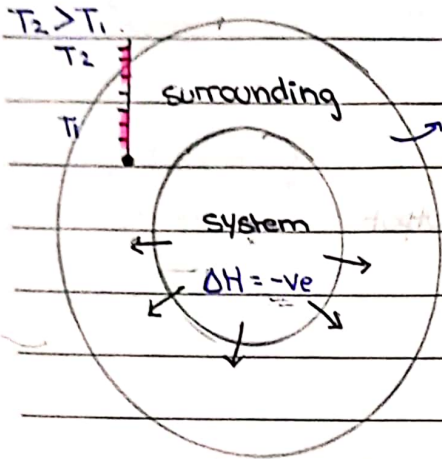 T₂ > T₁
T₂
surrounding
T₁
system
ΔH = -ve